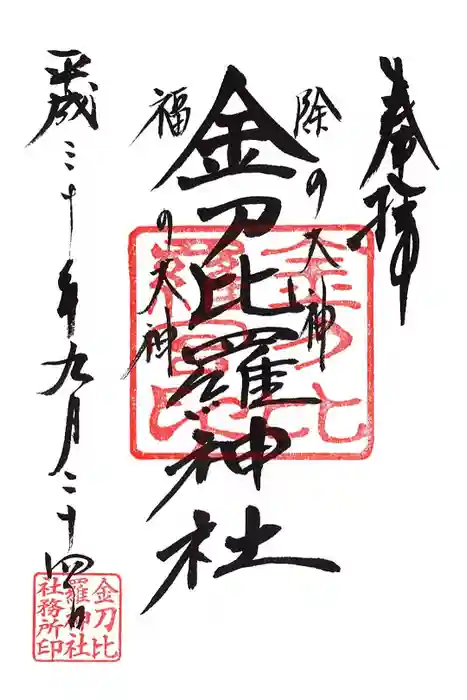 奉拝
除の大神
金刀比羅神社
福の大神
平成三十年九月二十四日
金刀比
金刀比
羅神社
社務所印